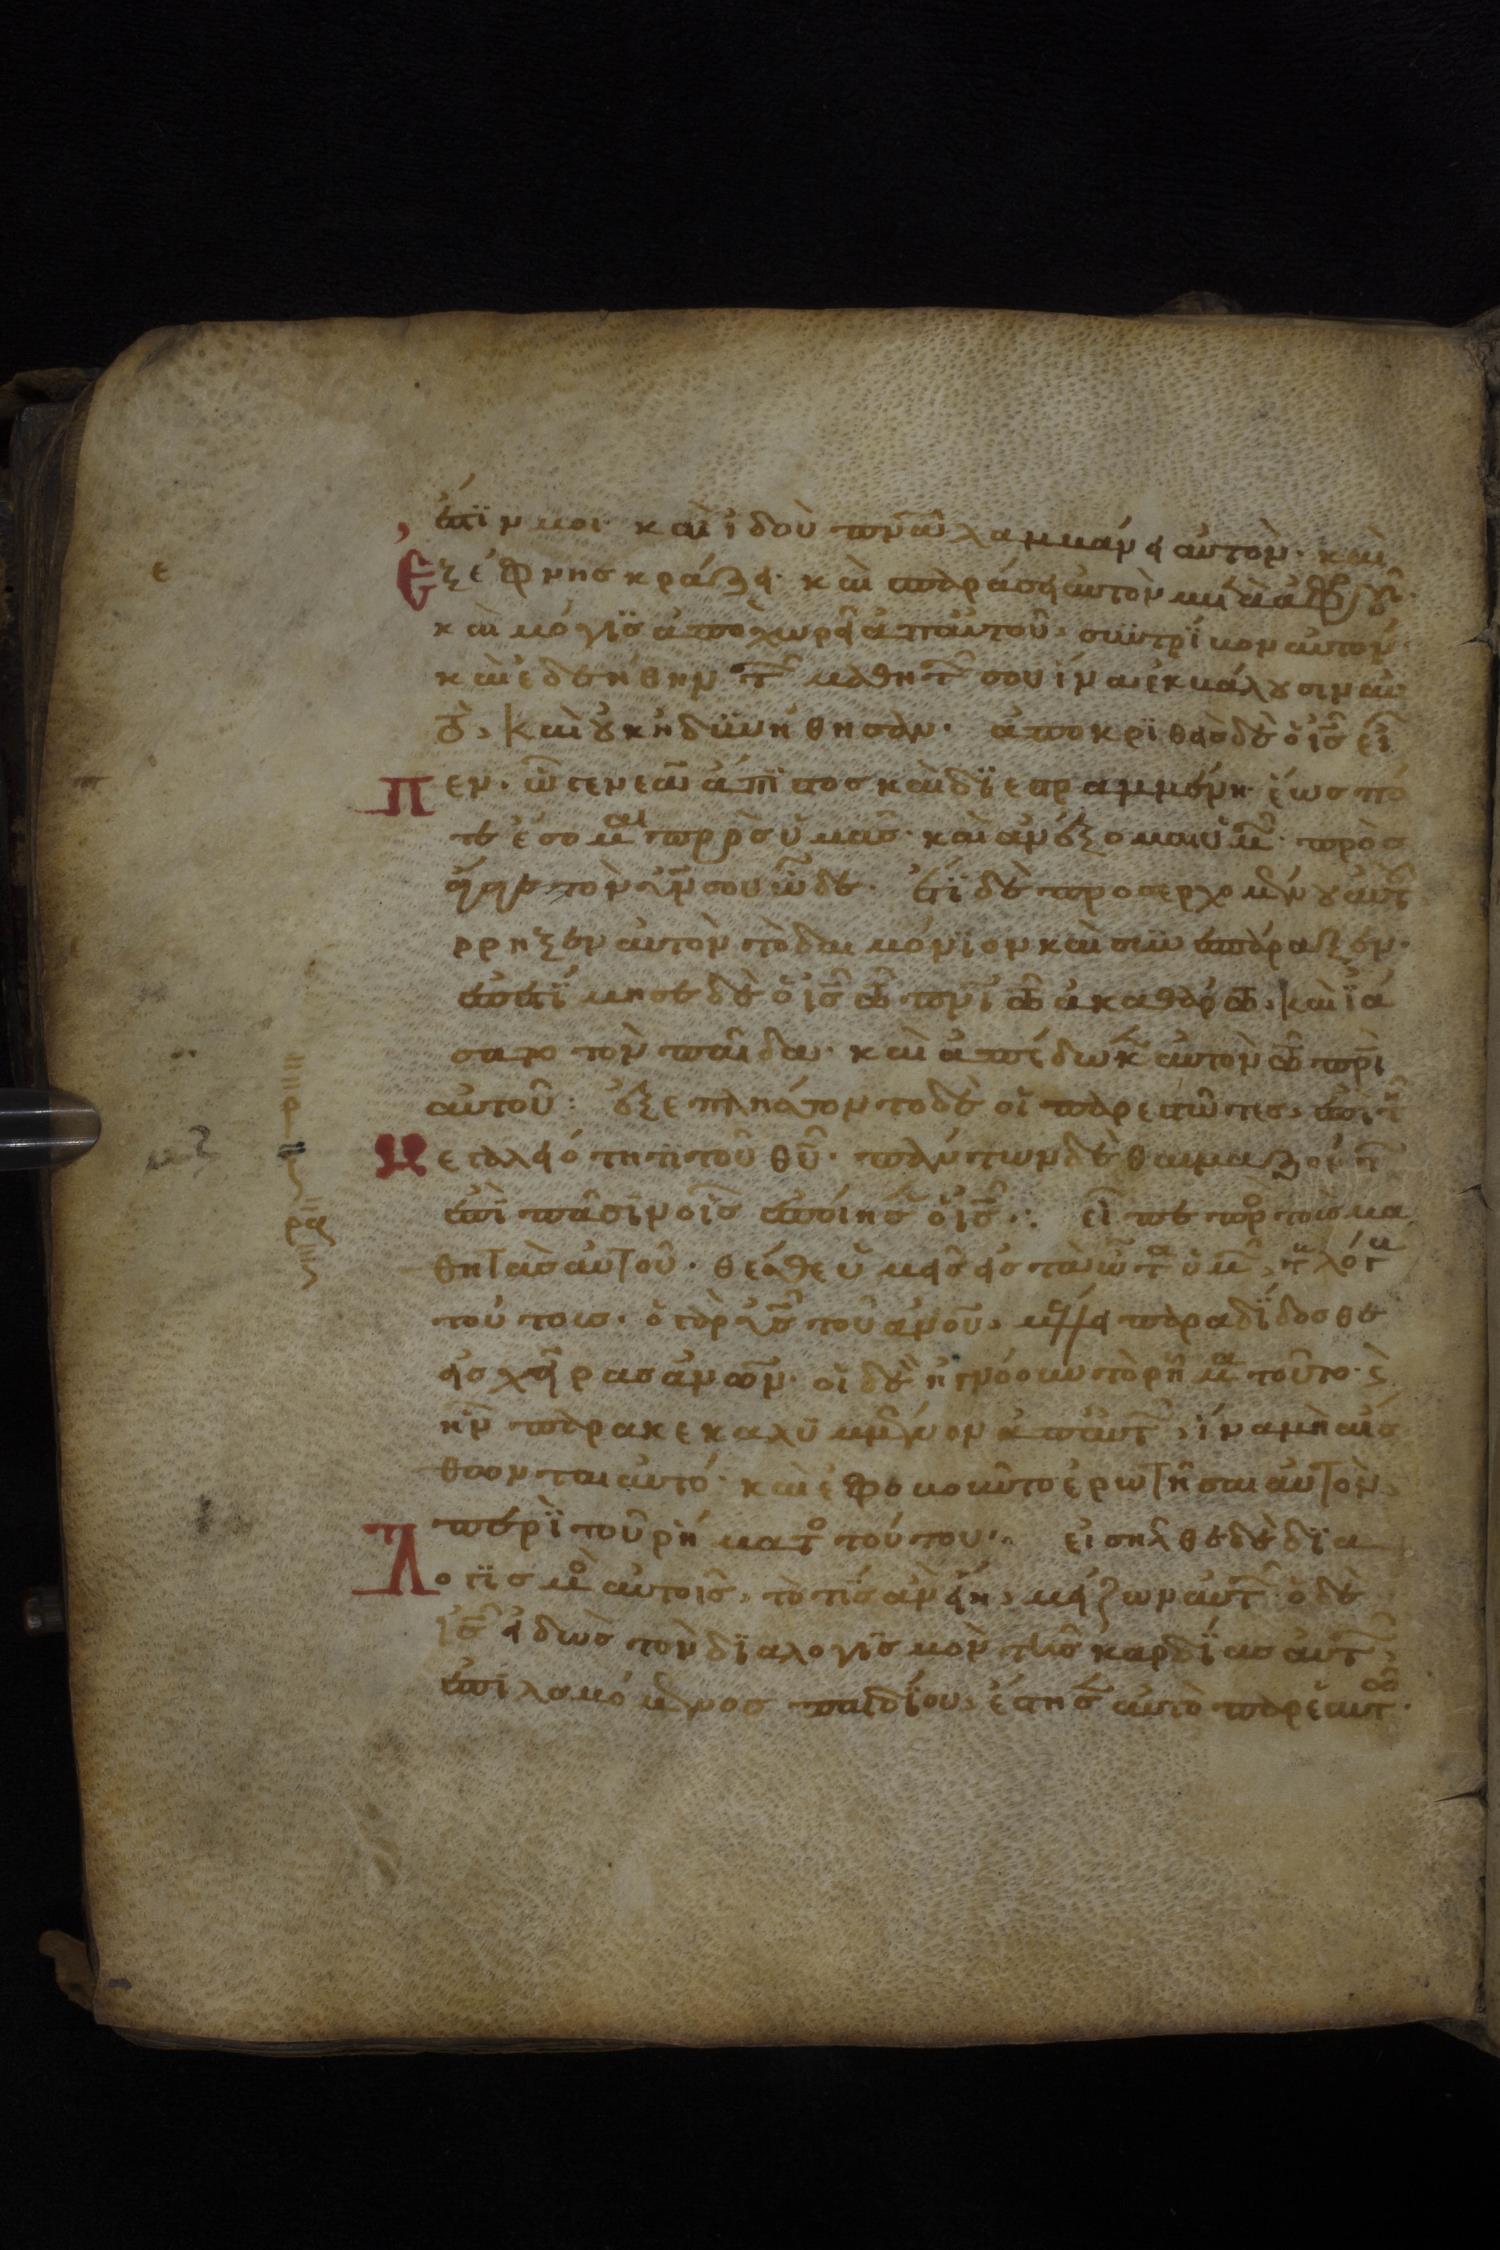 ἐστὶν μοι· καὶ ἰδοὺ πν̅α λαμβάνει αὐτὸν· καὶ
ἐξέφνης κράζει· καὶ σπαράσει αὐτὸν μετὰ ἀφροῦ·
καὶ μόγις ἀποχωρεῖ ἀπ' αὐτοῦ, συντρίβον αὐτόν·
καὶ ἐδεήθην τ̑ μαθητ̑ σου ἵνα ἐκβάλουσιν αὐ
τὸ, καὶ οὐκ ἠδυνήθησαν· ἀποκριθεὶς δὲ ὁ ις̅ εἶ
πεν· ὦ γενεὰ ἄπιστος καὶ διεστραμμένη· ἕως πό
τε ἔσομαι πρὸς ὑμᾶς· καὶ ἀνέξομαι ὑμ̑· πρὸσ
άγαγε τὸν υν̅ σου ὧδε· ἔτι δὲ προσερχομένου αὐτοῦ
ρρηξεν αὐτὸν τὸ δαιμόνιον καὶ συνεσπάραξεν·
ἐπετίμησε δὲ ὁ ις̅ τῶ πνι̅ τῶ ἀκαθάρτω, καὶ ἰά
σατο τὸν παῖδα· καὶ ἀπέδωκεν αὐτὸν τῶ πρι̅
αὐτοῦ: ἐξεπλήσσοντο δὲ οἱ παρεστῶτες, ἐπὶ τῆ
μεγαλειότητι τοῦ θυ̅· πάντων δὲ θαυμαζόντ̑
ἐπὶ πᾶσιν οἷς ἐποίησεν ὁ ις̅·: εἶπε πρ̊ τοὺς μα
θητὰς αὐτοῦ· θέσθε ὑμεῖς εἰς τὰ ὦτα ὑμ̑, τ̑ λόγ
τούτοις· ὁ γὰρ υς̅ τοῦ ανου̅, μέλλει παραδίδοσθε
εἰς χεῖρας ανων̅· οἱ δὲ ἠγνόουν τὸ ρῆμα τοῦτο· καὶ
ἦν παρακεκαλυμμένον ἀπ' αὐτ̑, ἵνα μὴ αἴσ
θωνται αὐτό· καὶ ἐφοβοῦντο ἐρωτῆσαι αὐτὸν,
περὶ τοῦ ρήματ̊ τούτου·: εἰσῆλθε δὲ δια
λογισμὸς αὐτοῖς, τὸ τίς ἂν εἴη, μείζων αὐτ̑· ὁ δὲ
ις̅ εἰδὼς τὸν διαλογισμὸν τῆς καρδίας αὐτ̑,
ἐπιλαβόμενος παιδίου, ἔστησεν αὐτὸ παρ' ἑαυτῶ·